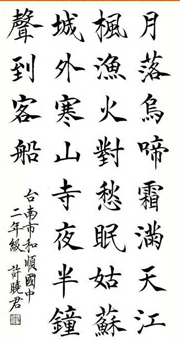 月落烏啼霜滿天江
楓漁火對愁眠姑蘇
城外寒山寺夜半鐘
聲到客船
台南市和順國中
二年級 許曉君